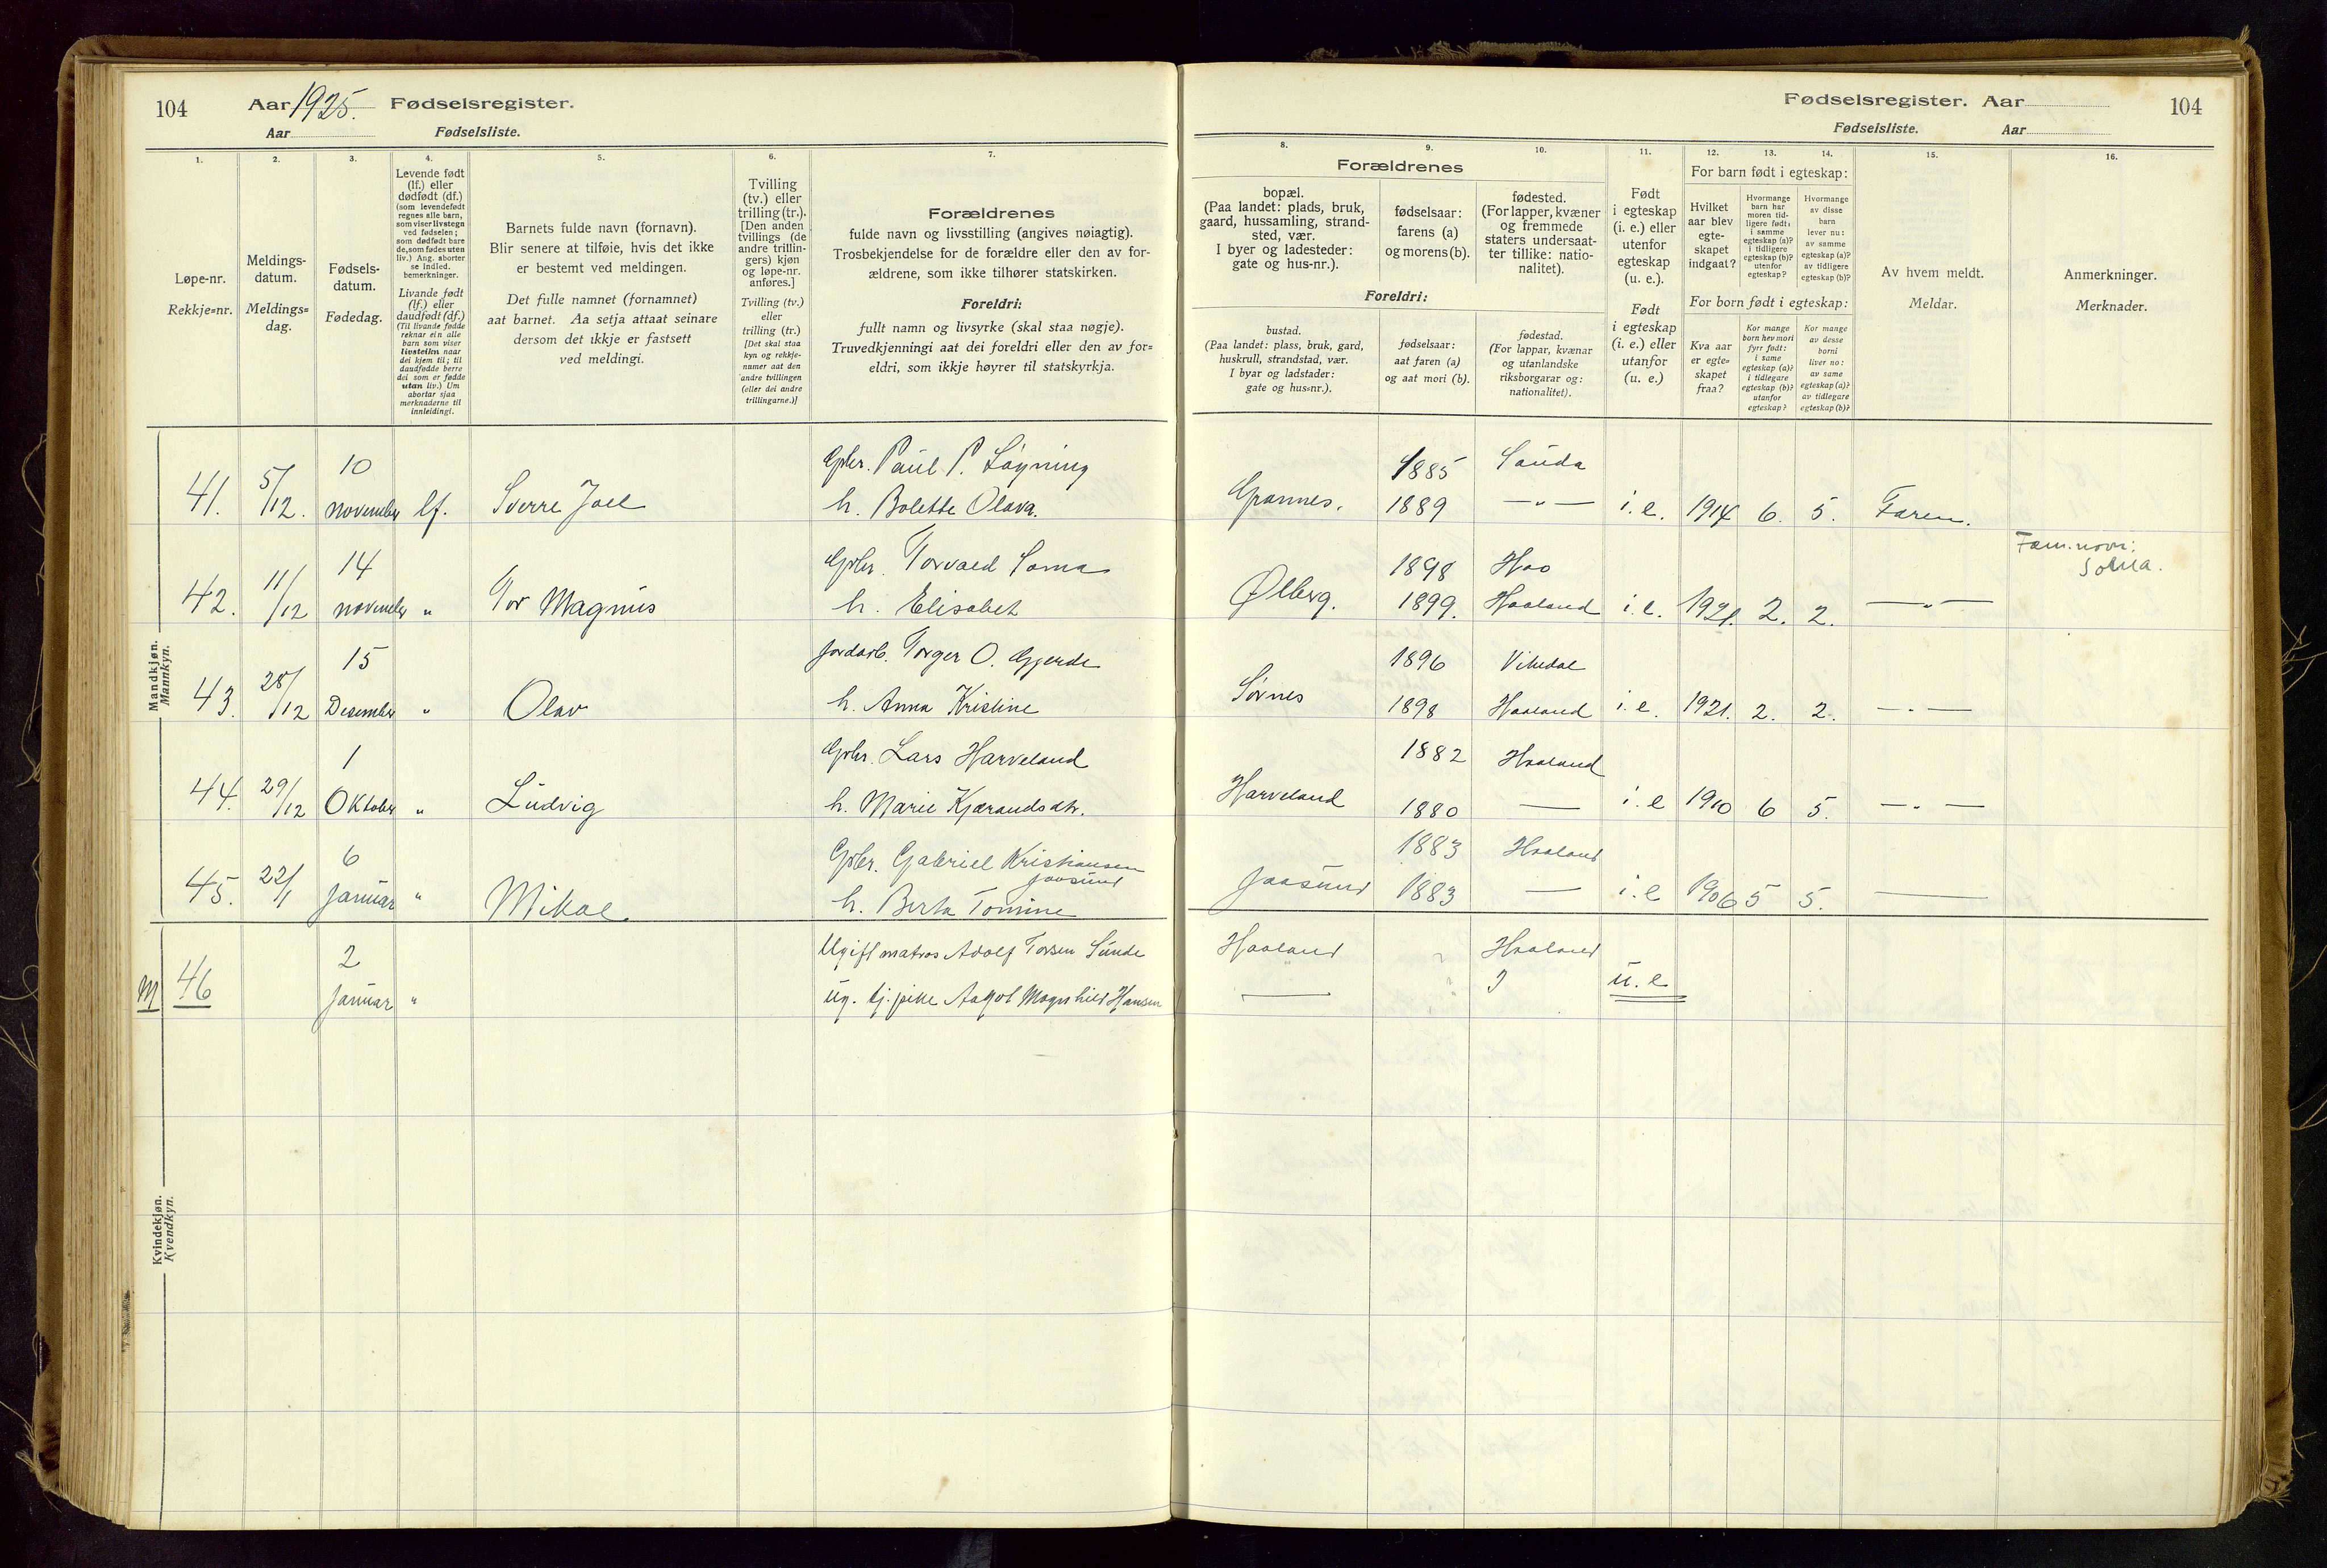 104 Aar 1925. Fødselsregister.
Aar Fødselsliste.
Fødselsregister. Aar 104
Fødselsliste. Aar
1. 2. 3. 4. 5. 6. 7.
Løpe-nr.
Rekkje=nr.
Meldings-
datum.
Meldings=
dag.
Fødsels-
datum.
Fødedag.
Levende født
(lf.) eller
dødfødt (df.)
(som levendefødt
regnes alle barn,
som viser livstegn
ved fødselen;
som dødfødt bare
de, som fødes uten
liv.) Ang. aborter
se indled.
bemerkninger.
Livande født
(lf.) eller
daudfødt (df.)
(Til livande fødde
reknar ein alle
barn som viser
livsteikn naar
dei kjem til; til
daudfødde berre
dei som er fødde
utan liv.) Um
abortar sjaa
merknaderne til
innleidingi.
Barnets fulde navn (fornavn).
Blir senere at tilføie, hvis det ikke
er bestemt ved meldingen.
Det fulle namnet (fornamnet)
aat barnet. Aa setja attaat seinare
dersom det ikkje er fastsett
ved meldingi.
Tvilling
(tv.) eller
trilling (tr.).
[Den anden
tvillings (de
andre trillin-
gers) kjøn
og løpe-nr.
anføres.]
Tvilling (tv.)
eller
trilling (tr.)
[Det skal staa
kyn og rekkje-
numer aat den
andre tvillingen
(eller dei andre
trillingarne.)]
Forældrenes
fulde navn og livsstilling (angives nøiagtig).
Trosbekjendelse for de forældre eller den av for-
ældrene, som ikke tilhører statskirken.
Foreldri:
fullt namn og livsyrke (skal staa nøgje).
Truvedkjenningi aat dei foreldri eller den av for=
eldri, som ikkje høyrer til statskyrkja.
8. 9. 10. 11. 12. 13. 14. 15. 16.
Forældrenes
bopæl.
(Paa landet: plads, bruk,
gaard, hussamling, strand-
sted, vær.
I byer og ladesteder:
gate og hus-nr.).
fødselsaar:
farens (a)
og morens (b).
fødested.
(For lapper, kvæner
og fremmede
staters undersaat-
ter tillike: natio-
nalitet).
Foreldri:
bustad.
(Paa landet: plass, bruk, gard,
huskrull, strandstad, vær.
I byar og ladstader:
gate og hus=nr.).
fødselsaar:
aat faren (a)
og aat mori (b).
fødestad.
(For lappar, kvænar
og utanlandske
riksborgarar og:
nationalitet).
Født
i egteskap
(i. e.) eller
utenfor
egteskap
(u. e.).
Født
i egteskap
(i. e.) eller
utanfor
(u. e.)
For barn født i egteskap:
Hvilket
aar blev
egte-
skapet
indgaat?
Hvormange
barn har
moren tid-
ligere født:
i samme
egteskap (a)?
i tidligere
egteskap (b)?
utenfor
egteskap?
Hvormange
av disse
barn
lever nu:
av samme
egteskap (a)?
av tidligere
egteskap (b)?
For born født i egteskap:
Kva aar
er egte=
skapet
fraa?
Kor mange
born hev mori
fyrr født:
i same
egteskap (a)?
i tidlegare
egteskap (b)?
utanfor
egteskap?
Kor mange
av desse
borni
liver no:
av same
egteskap (a)?
av tidlegare
egteskap (b)?
Av hvem meldt.
Meldar.
Anmerkninger.
Merknader.
Mandkjøn.
Mannkyn.
41. 5/12. 10 november lf. Sverre Joel Gbr. Paul P. Løyning
h. Bolette Olava.
Grannes. 1885 Sauda
1889 —"— i.e. 1914 6. 5. Faren.
42. 11/12 14 november " Tor Magnus Gbr. Torvald Soma
h. Elisabet
Ølberg. 1898 Hoo
1899. Haaland i.e. 1921. 2. 2. —"—
Fam.navn:
Soma.
43. 28/12 15 Desember " Olav Jordarb. Torger O. Gjerde
h. Anna Kristine
Sørnes 1896 Vikedal
1898 Haaland i.e. 1921. 2. 2. —"—
44. 29/12 1 Oktober " Ludvig Gbr. Lars Harveland
h. Marie Kjærandsdtr.
Harveland 1882 Haaland
1880 — i.e 1910 6 5. —"—
45. 22/1 6 Januar " Mikal. Gbr. Gabriel Kristiansen
Jaasund
h. Berta Tomine
Jaasund 1883 Haaland
1883 — i.e 1906 5 5. —
M 46 2 Januar " Ugift matros Adolf Torsen Sunde
ug. tj.pike Aagot Magnhild Hansen
Haaland Haaland
— ? u.e
Kvindekjøn.
Kvendkyn.